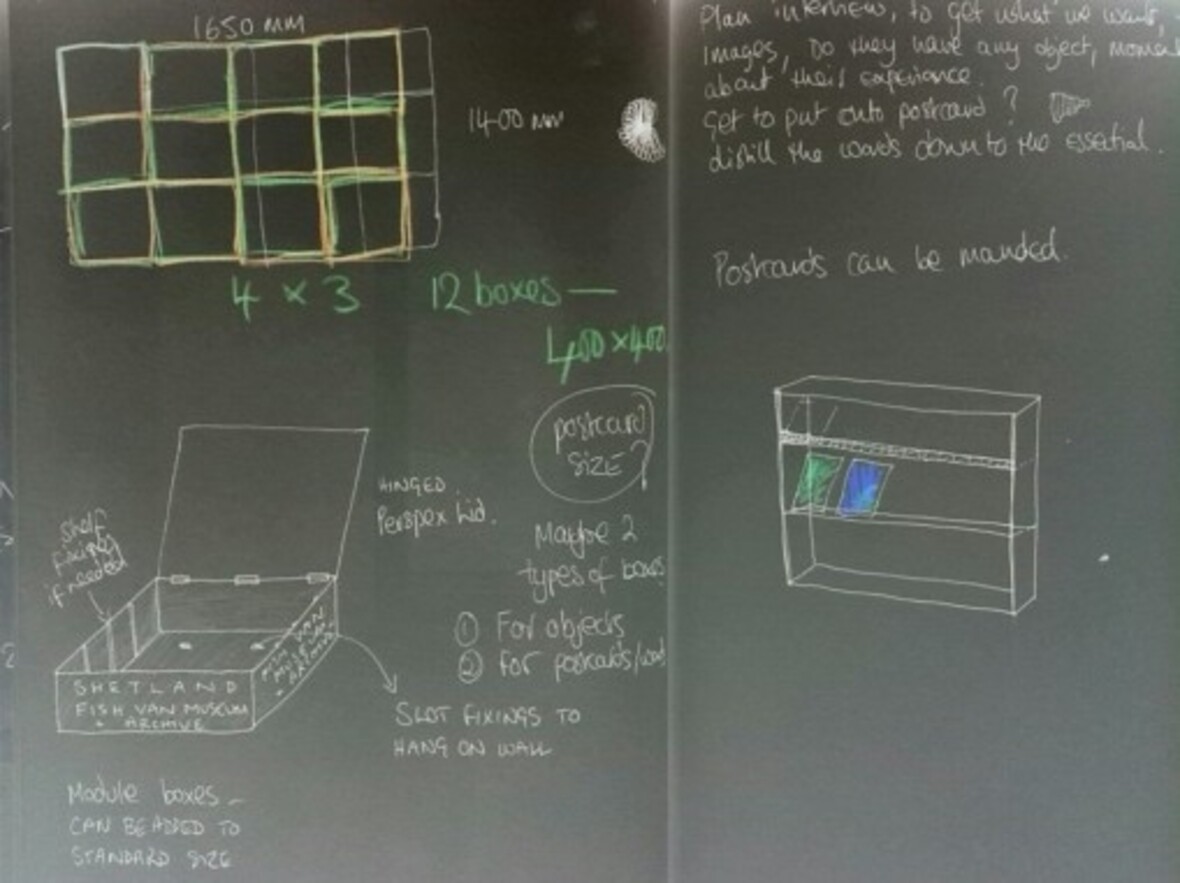 1650 MM
1400 MM
4 × 3 12 boxes —
400×400
postcard
SIZE?
HINGED
Perspex Lid.
Shelf
fixings
if needed
Maybe 2
types of boxes
① For objects
② for postcards/
SHETLAND
FISH VAN MUSEUM
+ ARCHIVE
FISH VAN
MUSEUM
+ ARCHIVE
SLOT FIXINGS TO
HANG ON WALL
Module boxes –
CAN BE ADDED TO
STANDARD SIZE
Plan interview, to get what we want,
Images, Do they have any object,
about their experience.
Get to put onto postcard?
distill the words down to the essential.
Postcards can be